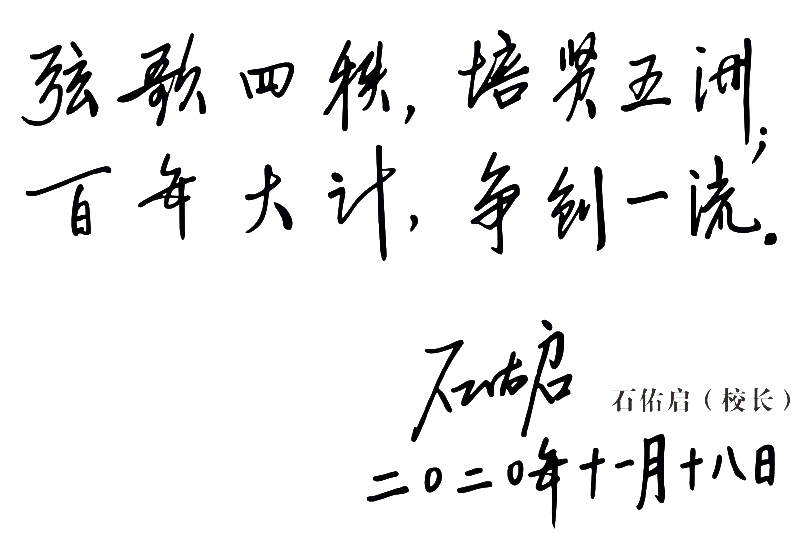 弦歌四秩，培贤五洲；
百年大计，争创一流。
石佑启 石佑启（校长）
二〇二〇年十一月十八日